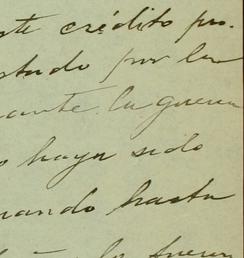 ste crédito pro-
stado por la
rante la guerra
o haya sido
uando hasta
la fueron